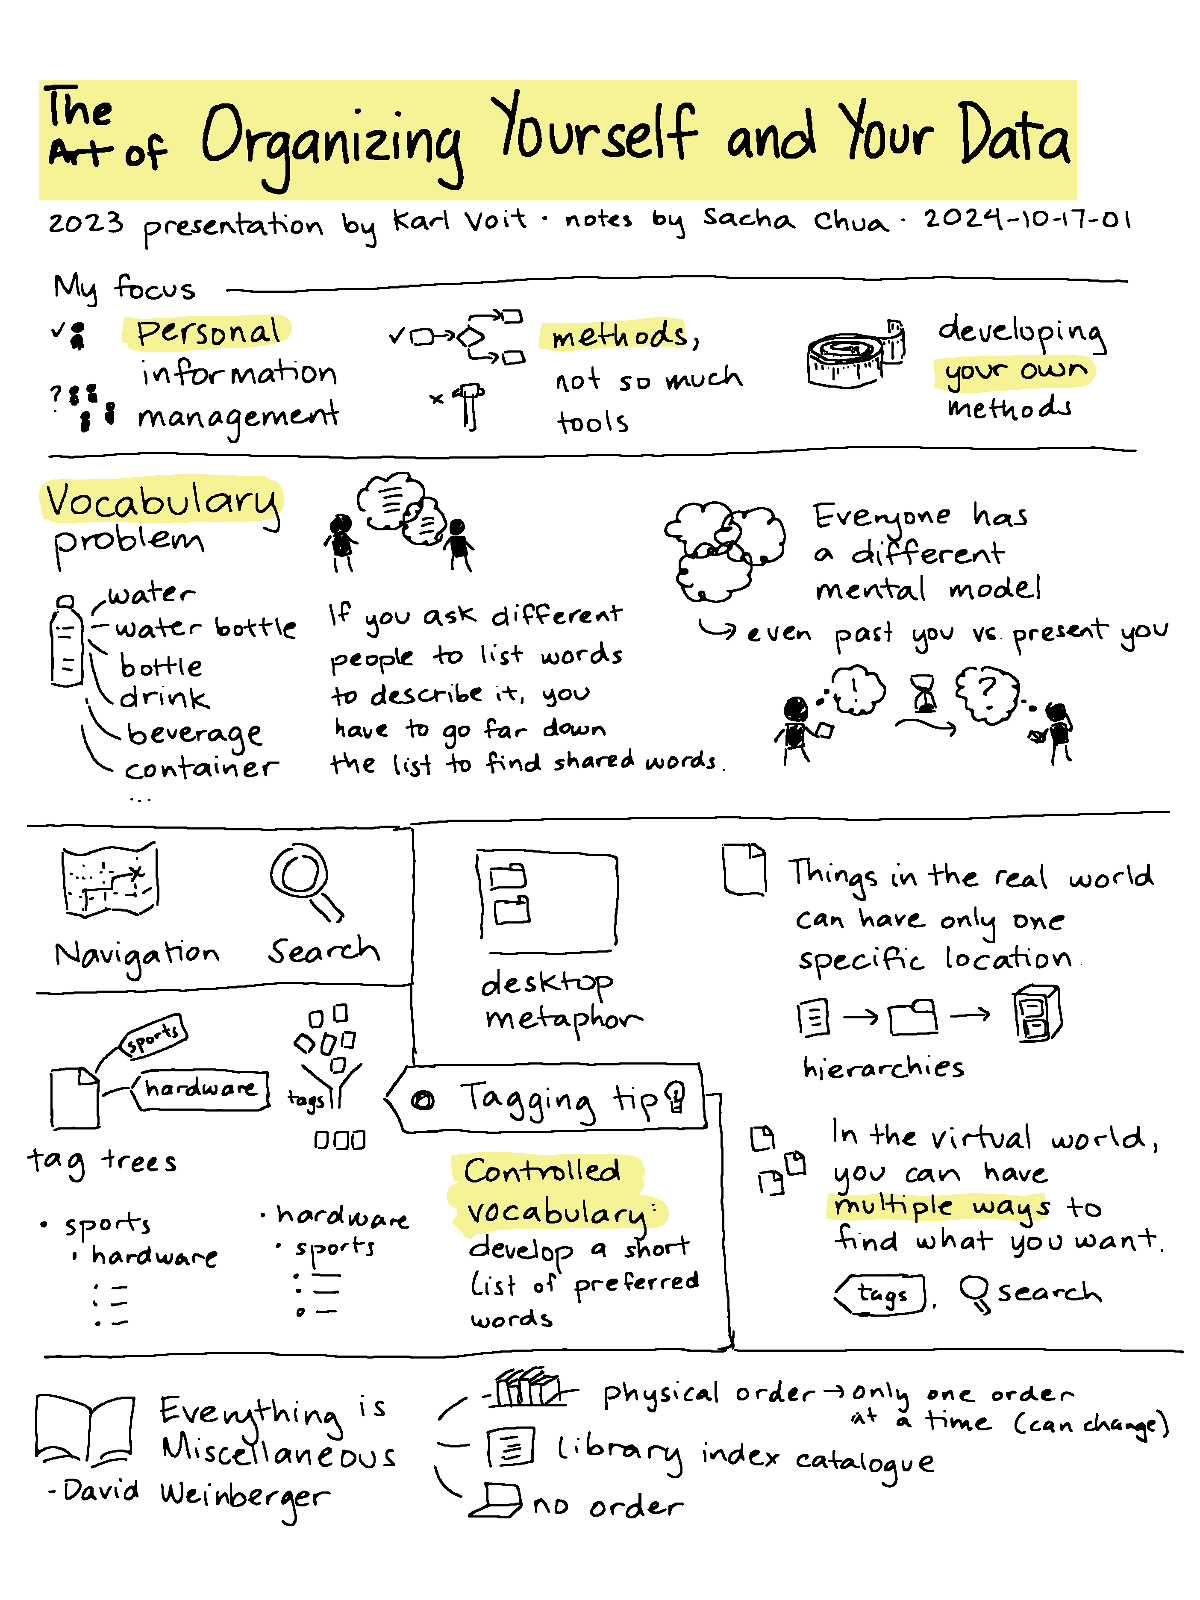 The Art of Organizing Yourself and Your Data
2023 presentation by Karl Voit · notes by Sacha Chua · 2024-10-17-01
My focus
Personal
information
management
?
methods,
not so much
tools
developing
your own
methods
Vocabulary
problem
water
water bottle
bottle
drink
beverage
container
...
If you ask different
people to list words
to describe it, you
have to go far down
the list to find shared words.
Everyone has
a different
mental model
even past you vs. present you
!
?
Navigation
Search
desktop
metaphor
Things in the real world
can have only one
specific location.
hierarchies
In the virtual world,
you can have
multiple ways to
find what you want.
tags, search
sports
hardware
tags
tag trees
• sports
• hardware
• hardware
• sports
Tagging tip
Controlled
vocabulary:
develop a short
list of preferred
words
Everything is
Miscellaneous
- David Weinberger
physical order → only one order
at a time (can change)
library index catalogue
no order